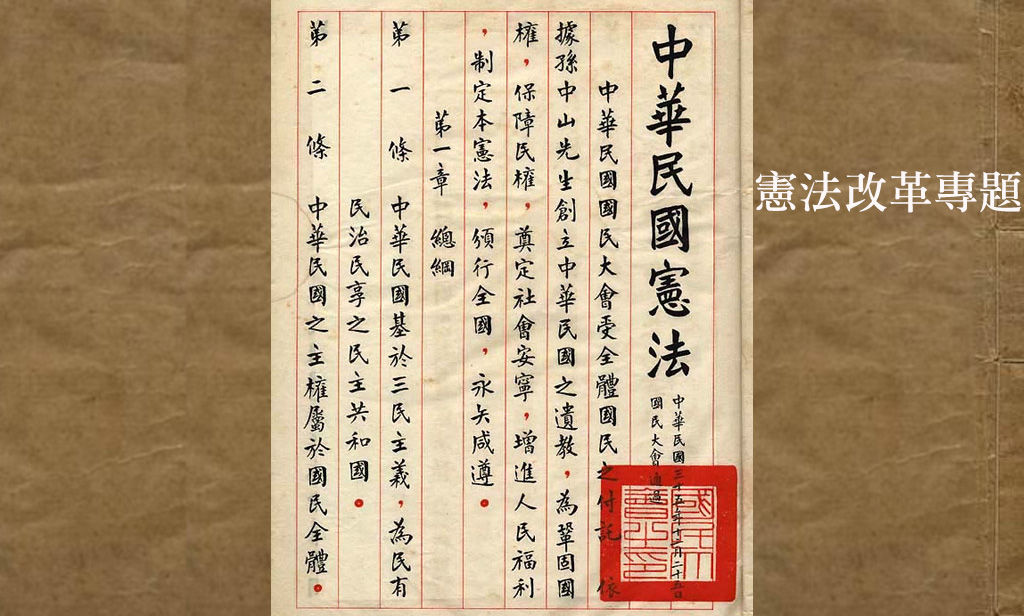 憲法改革專題
中華民國憲法
中華民國三十五年十二月二十五日
國民大會通過
中華民國國民大會受全體國民之付託依
據孫中山先生創立中華民國之遺教，為鞏固國
權，保障民權，奠定社會安寧，增進人民福利
，制定本憲法，頒行全國，永矢咸遵。
第一章 總綱
第一條 中華民國基於三民主義，為民有
民治民享之民主共和國。
第二條 中華民國之主權屬於國民全體。
國民大會之印